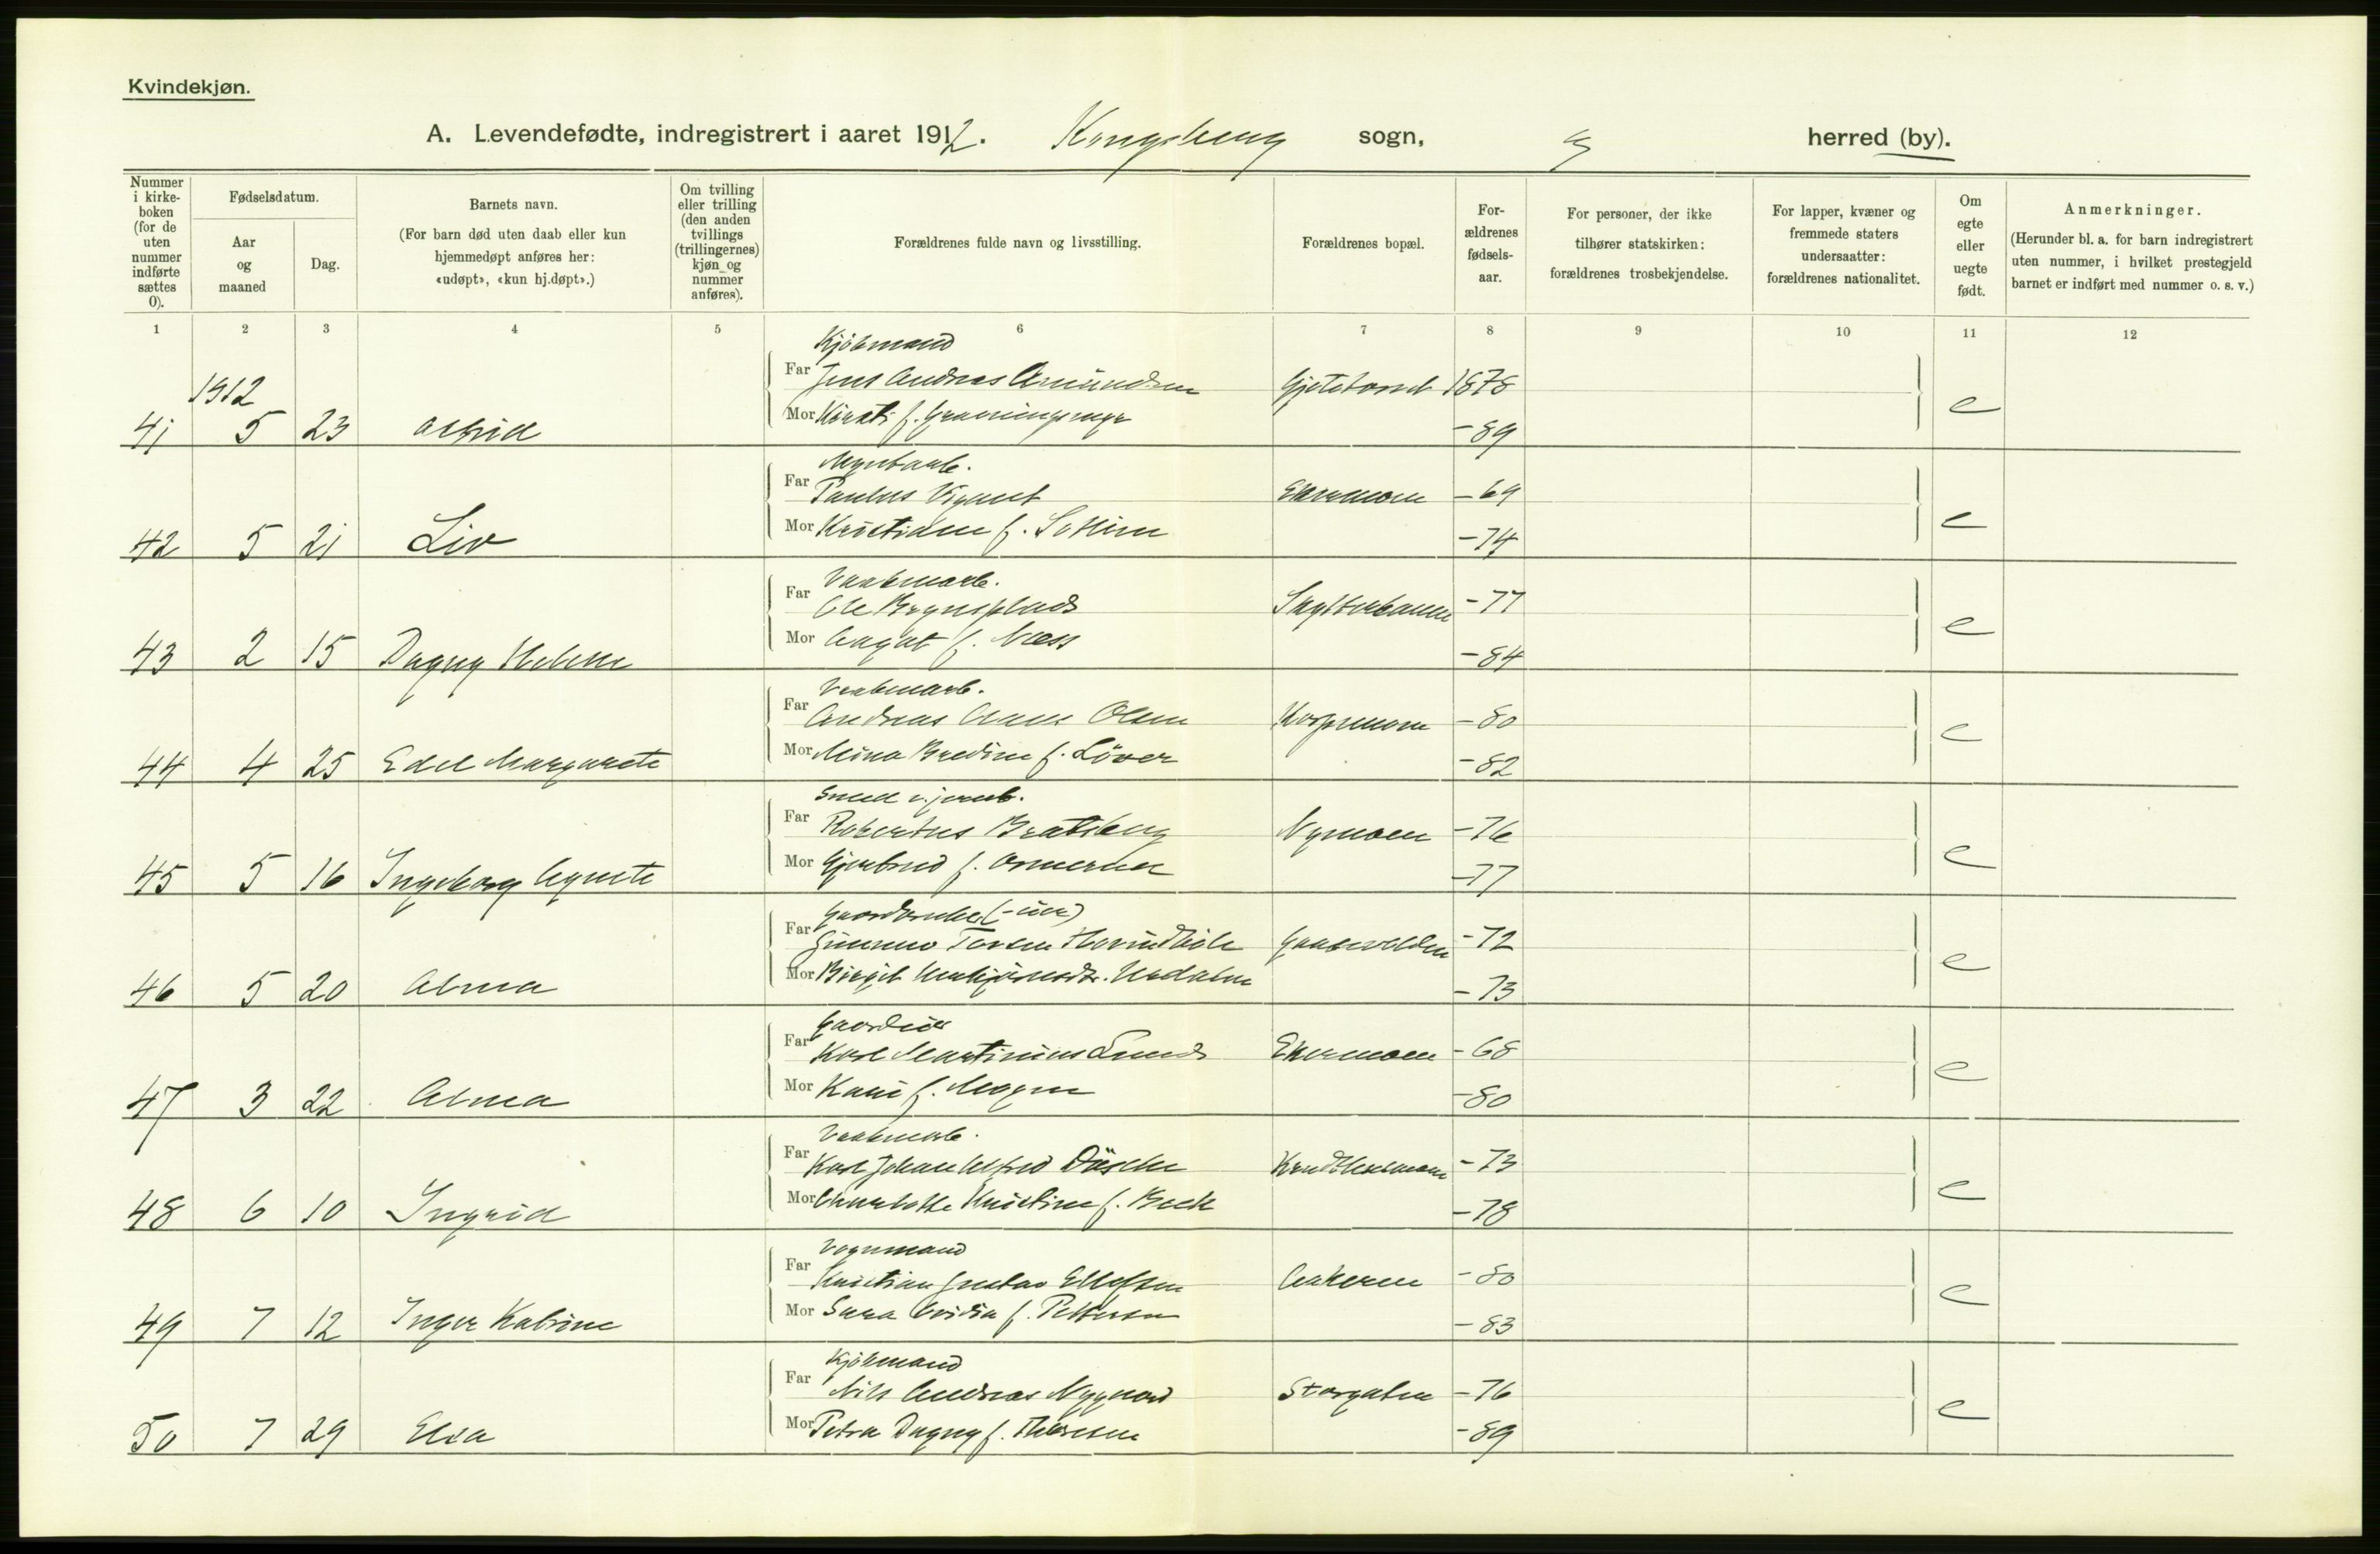 Kvindekjøn.
A. Levendefødte, indregistrert i aaret 1912. Kongsberg sogn, herred (by).
Nummer i kirkeboken (for de uten nummer indførte sættes 0).
Fødselsdatum.
Aar og maaned
Dag.
Barnets navn.
(For barn død uten daab eller kun hjemmedøpt anføres her: «udøpt», «kun hj.døpt».)
Om tvilling eller trilling (den anden tvillings (trillingernes) kjøn og nummer anføres).
Forældrenes fulde navn og livsstilling.
Forældrenes bopæl.
Forældrenes fødselsaar.
For personer, der ikke tilhører statskirken: forældrenes trosbekjendelse.
For lapper, kvæner og fremmede staters undersaatter: forældrenes nationalitet.
Om egte eller uegte født.
Anmerkninger.
(Herunder bl. a. for barn indregistrert uten nummer, i hvilket prestegjeld barnet er indført med nummer o. s. v.)
1 2 3 4 5 6 7 8 9 10 11 12
Kjöbmand
1912 Far Jens Andreas Amundsen 1878
41 5 23 Astrid Mor f. -89 e
Far Paulus -69
42 5 21 Liv Mor Kristiane f. -74 e
Vaabenarb.
Far Ole Brynsplads -77
43 2 15 Dagny Helene Mor Aagot f. Næss -84 e
Vaabenarb.
Far Andreas Olsen -80
44 4 25 Edel Margarete Mor Mina Bredine f. Löver -82 e
Smed v. jernb.
Far Robertus Bratsberg Nymoen -76
45 5 16 Ingeborg Agnete Mor Gjertrud f. -77 e
Gaardbruker
Far Gunnuv -72
46 5 20 Alma Mor Birgit -73 e
Far Karl Martinius Lund Ekermoen -68
47 3 22 Alma Mor Kari f. Mogen -80 e
Vaabenarb.
Far Karl Johan Alfred -73
48 6 10 Ingrid Mor Charlotte Kristine f. Beck -78 e
Vognmand
Far Kristian Gustav Ellefsen Aakeren -80
49 7 12 Inger Katrine Mor Sara f. Pettersen -83 e
Kjöbmand
Far Nils Andreas Nygaard Storgaten -76
50 7 29 Elsa Mor Petra Dagny f. -89 e